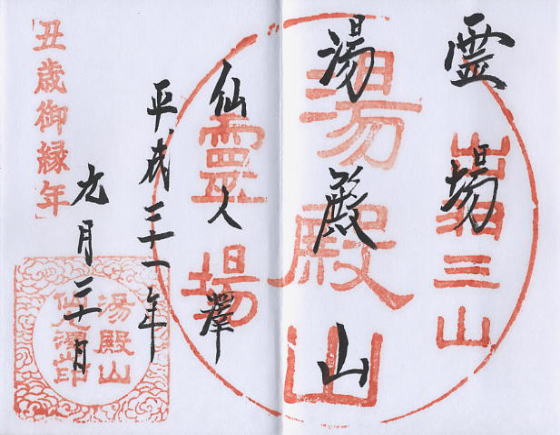 霊場
出羽三山
湯殿山
湯殿山
仙人澤
靈場
平成二十一年
九月二十日
「丑歳御縁年」
湯殿山
仙人澤印